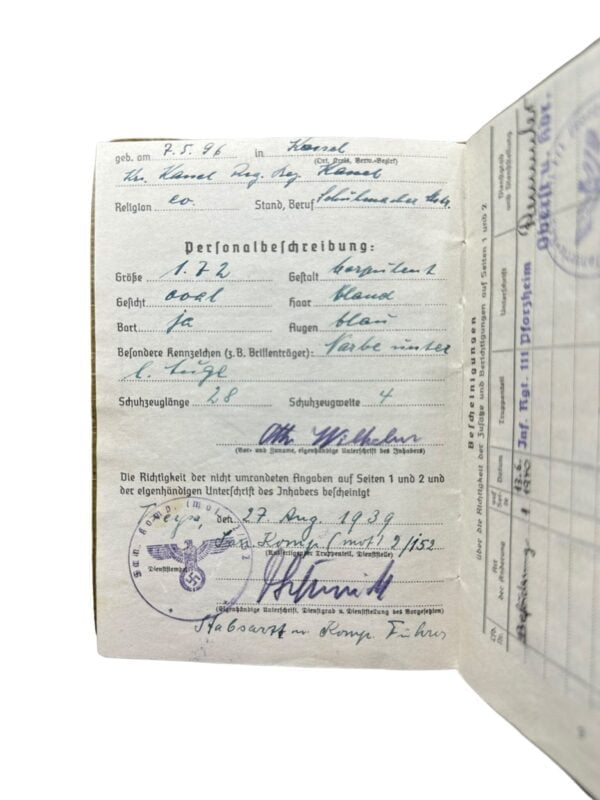 geb. am 7.5.96 in Kassel
(Ort, Kreis, Verw.-Bezirk)
Krs. Kassel Reg. Bez. Kassel
Religion ev. Stand, Beruf Schuhmacher
Personalbeschreibung:
Größe 1.72 Gestalt korpulent
Gesicht oval Haar blond
Bart ja Augen blau
Besondere Kennzeichen (z.B. Brillenträger): Narbe unter
l. Auge
Schuhzeuglänge 28 Schuhzeugweite 4
Otto Wilhelm
(Vor- und Zuname, eigenhändige Unterschrift des Inhabers)
Die Richtigkeit der nicht umrandeten Angaben auf Seiten 1 und 2 und
der eigenhändigen Unterschrift des Inhabers bescheinigt
Treysa, den 27 Aug. 1939
San. Komp. (mot) 2/152
Dienststempel
(Eigenhändige Unterschrift, Dienstgrad u. Dienststellung des Vorgesetzten)
Stabsarzt u. Komp. Führer
San. Komp. (mot.)
Bescheinigungen
über die Richtigkeit der Zusätze und Berichtigungen auf Seiten 1 und 2
Lfd. Nr. Art der Änderung auf Seite Datum Truppenteil Unterschrift Dienstgrad und Dienststellung
Beförderung 1 Inf. Rgt. 111 Pforzheim
Oberlt. u.